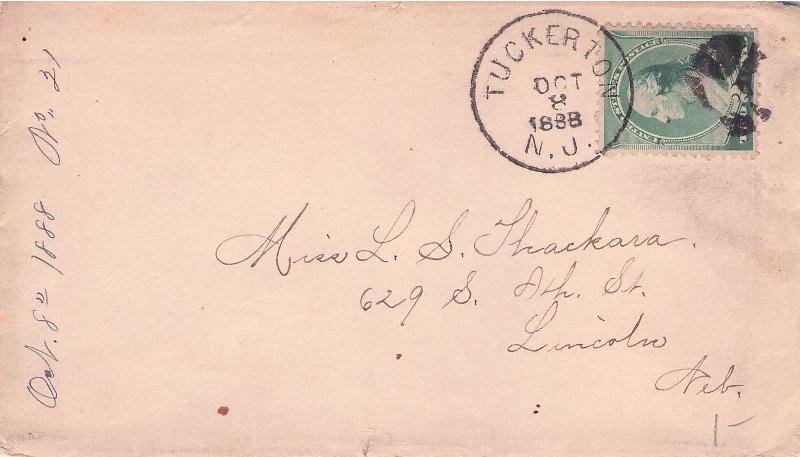 TUCKERTON
OCT
8
1888
N. J.
Miss L. S. Thackara.
629 S. St.
Lincoln
Neb.
Oct. 8th 1888 No. 21